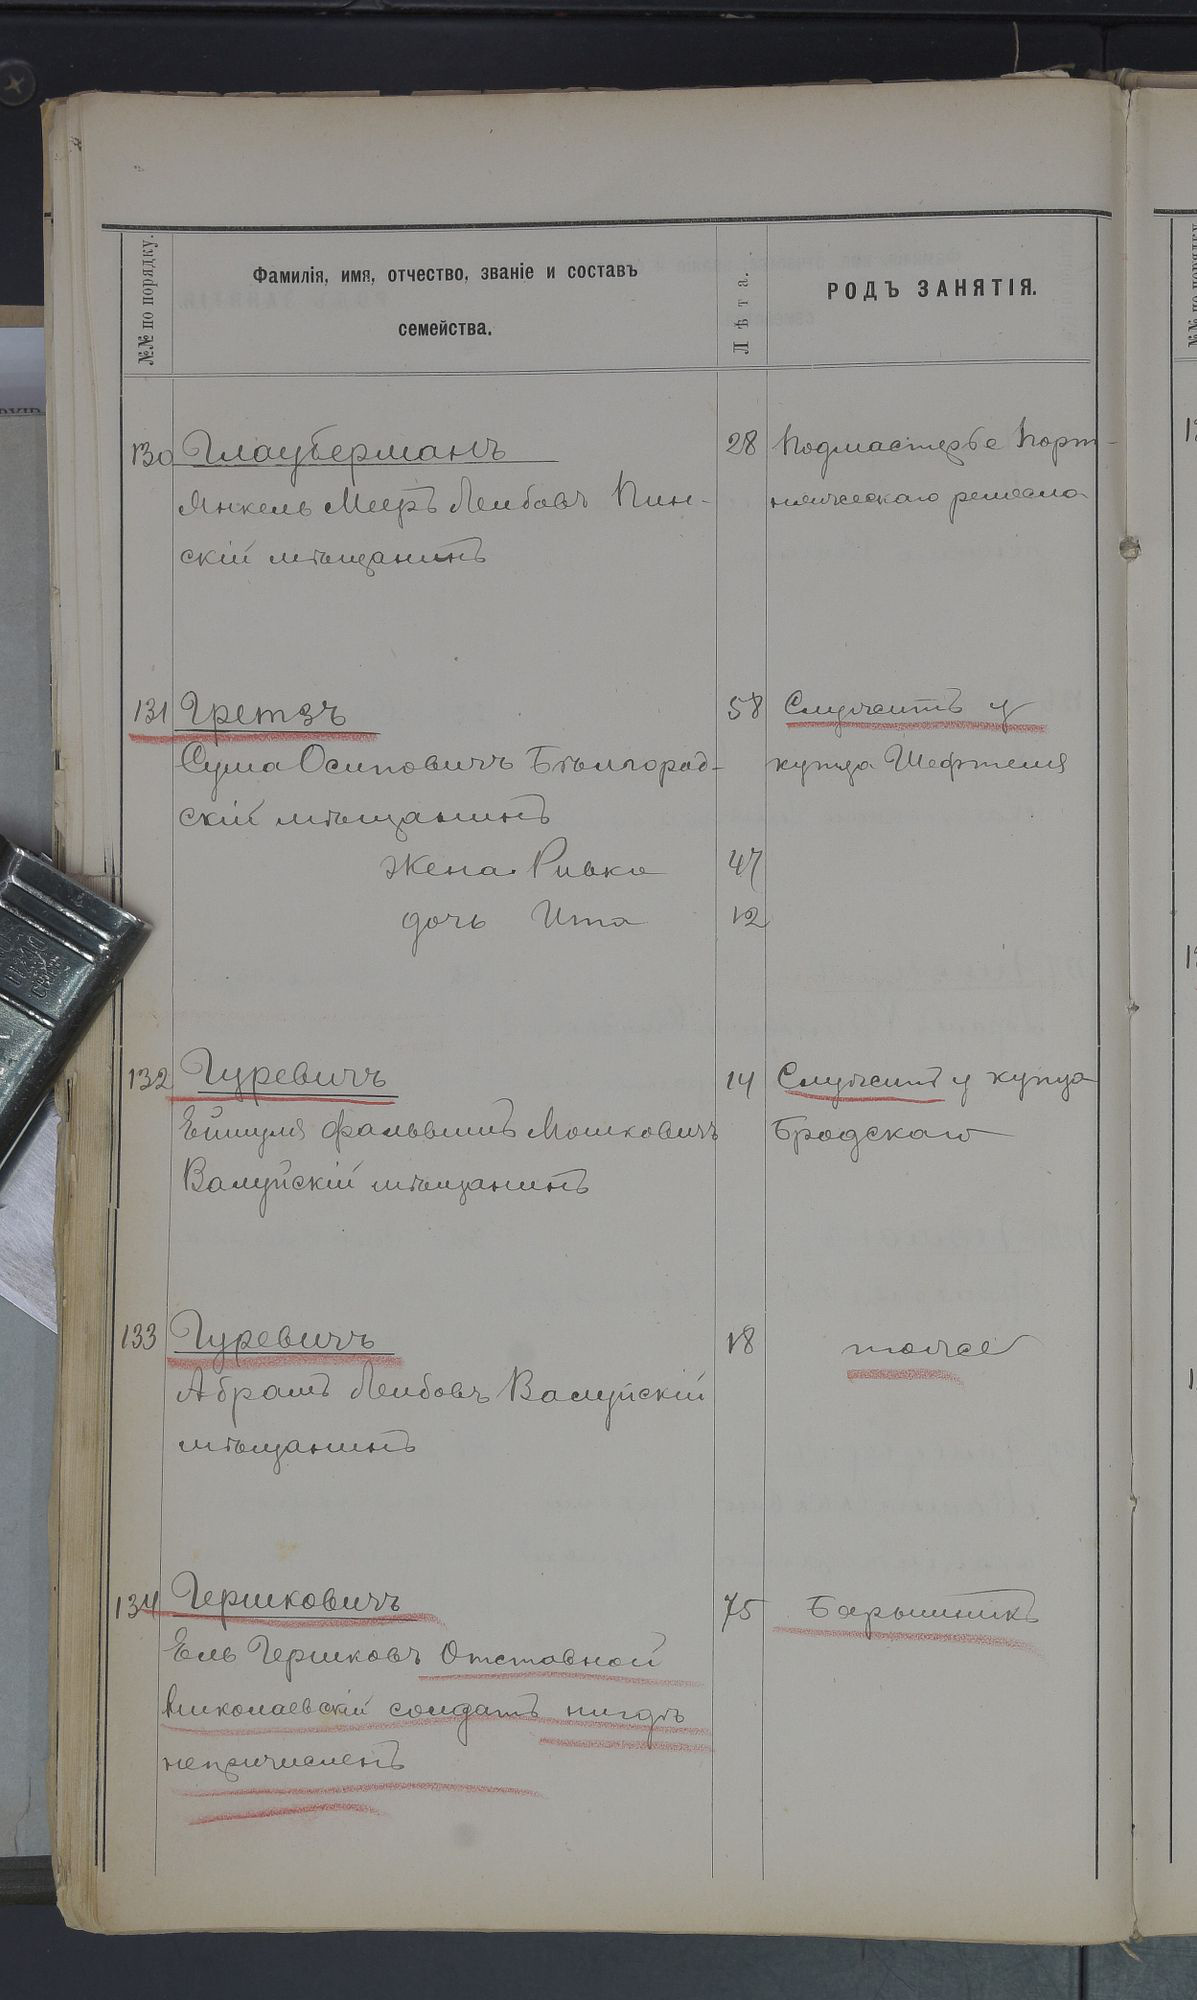 №№ по порядку.
Фамилія, имя, отчество, званіе и составъ
семейства.
Лѣта.
РОДЪ ЗАНЯТІЯ.
130 Глауберманъ 28 Подмастерье Порт-
Янкель Меръ Лейбовъ Пин- няжескаго ремесла
скій мѣщанинъ
131 Гретзъ 58 Служитъ у
Суша Осиповичъ Бѣлгород- купца Шефтеля
скій мѣщанинъ
Жена Ривка 47
дочь Ита 12
132 Гуревичъ 14 Служитъ у купца
Мошковичъ Бродскаго
Валуйскій мѣщанинъ
133 Гуревичъ 18 тоже
Абрамъ Лейбовъ Валуйскій
мѣщанинъ
134 Гершковичъ 75 Барышникъ
Ель Гершковъ Отставной
Николаевскій солдатъ нигдѣ
непричисленъ